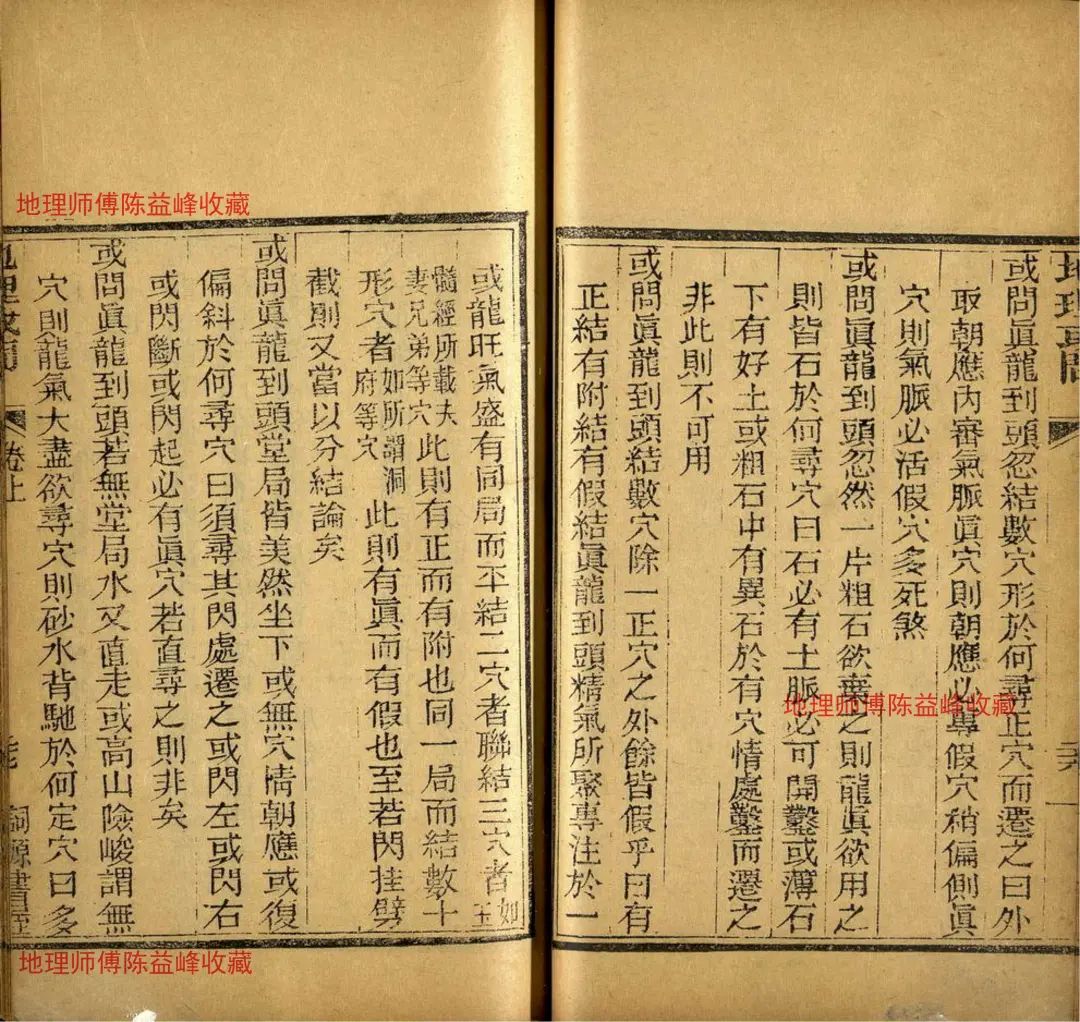 地理或問
或問眞龍到頭忽結數穴形於何尋正穴而遷之曰外
取朝應內審氣脈眞穴則朝應必專假穴稍偏側眞
穴則氣脈必活假穴多死煞
或問眞龍到頭忽然一片粗石欲棄之則龍眞欲用之
則皆石於何尋穴曰石必有土脈必可開鑿或薄石
下有好土或粗石中有異石於有穴情處鑿而遷之
非此則不可用
或問眞龍到頭結數穴除一正穴之外餘皆假乎曰有
正結有附結有假結眞龍到頭精氣所聚專注於一
或龍旺氣盛有同局而平結二穴者聯結三穴者如玉
髓經所載夫妻兄弟等穴此則有正而有附也同一局而結數十
形穴者如所謂洞府等穴此則有眞而有假也至若閃挂劈
截則又當以分結論矣
或問眞龍到頭堂局皆美然坐下或無穴情朝應或復
偏斜於何尋穴曰須尋其閃處遷之或閃左或閃右
或閃斷或閃起必有眞穴若直尋之則非矣
或問眞龍到頭若無堂局水又直走或高山險峻謂無
穴則龍氣大盡欲尋穴則砂水背馳於何定穴曰多
地理或問
卷上
地理师傅陈益峰收藏
地理师傅陈益峰收藏
地理师傅陈益峰收藏